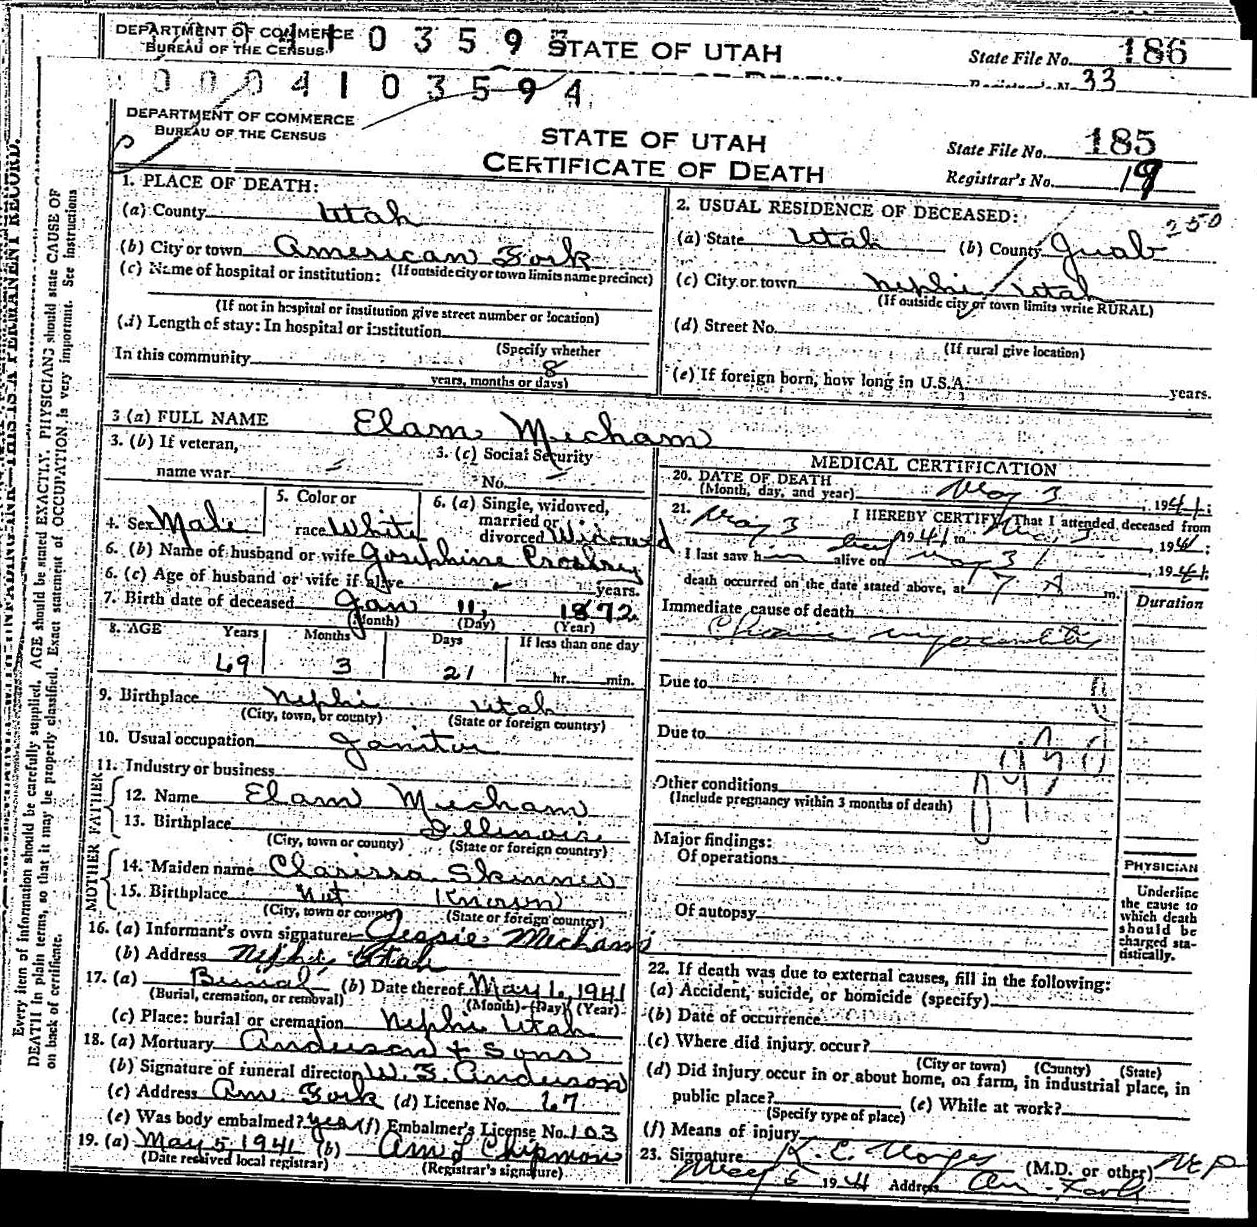 DEPARTMENT OF COMMERCE
BUREAU OF THE CENSUS
0359
STATE OF UTAH
State File No. 186
33
0004103594
DEPARTMENT OF COMMERCE
BUREAU OF THE CENSUS
STATE OF UTAH
CERTIFICATE OF DEATH
State File No. 185
Registrar's No. 19
Every item of information should be carefully supplied. AGE should be stated EXACTLY. PHYSICIANS should state CAUSE OF
DEATH in plain terms, so that it may be properly classified. Exact statement of OCCUPATION is very important. See instructions
on back of certificate.
1. PLACE OF DEATH:
(a) County Utah
(b) City or town American Fork
(If outside city or town limits name precinct)
(c) Name of hospital or institution:
(If not in hospital or institution give street number or location)
(d) Length of stay: In hospital or institution
(Specify whether
In this community 8
years, months or days)
2. USUAL RESIDENCE OF DECEASED: 250
(a) State Utah (b) County Juab
(c) City or town Nephi Utah
(If outside city or town limits write RURAL)
(d) Street No.
(If rural give location)
(e) If foreign born, how long in U.S.A. years.
3 (a) FULL NAME Elam Mecham
3. (b) If veteran,
name war –
3. (c) Social Security
No. –
4. Sex Male
5. Color or
race White
6. (a) Single, widowed,
married or
divorced Widowed
6. (b) Name of husband or wife Josephine
6. (c) Age of husband or wife if alive years.
7. Birth date of deceased Jan 11, 1872
(Month) (Day) (Year)
8. AGE Years Months Days If less than one day
69 3 21 hr. min.
9. Birthplace Nephi Utah
(City, town, or county) (State or foreign country)
10. Usual occupation Janitor
11. Industry or business
FATHER
12. Name Elam Mecham
13. Birthplace Illinois
(City, town or county) (State or foreign country)
MOTHER
14. Maiden name Clarissa Skinner
15. Birthplace Not Known
(City, town or county) (State or foreign country)
16. (a) Informant's own signature Jessie Mecham
(b) Address Nephi Utah
17. (a) Burial (b) Date thereof May 6, 1941
(Burial, cremation, or removal) (Month) (Day) (Year)
(c) Place: burial or cremation Nephi Utah
18. (a) Mortuary Anderson & Sons
(b) Signature of funeral director W. F. Anderson
(c) Address Am. Fork (d) License No. 67
(e) Was body embalmed? yes (f) Embalmer's License No. 103
19. (a) May 5 1941 (b) Chipman
(Date received local registrar) (Registrar's signature)
MEDICAL CERTIFICATION
20. DATE OF DEATH
(Month, day, and year) May 3, 1941.
21. I HEREBY CERTIFY, That I attended deceased from
May 3 1941 to May 3, 1941;
I last saw h alive on May 3, 1941;
death occurred on the date stated above, at 7 A m.
Duration
Immediate cause of death
Chronic myocarditis
Due to
Due to
Other conditions
(Include pregnancy within 3 months of death)
Major findings:
Of operations
Of autopsy
PHYSICIAN
Underline
the cause to
which death
should be
charged sta-
tistically.
22. If death was due to external causes, fill in the following:
(a) Accident, suicide, or homicide (specify)
(b) Date of occurrence
(c) Where did injury occur?
(City or town) (County) (State)
(d) Did injury occur in or about home, on farm, in industrial place, in
public place? (e) While at work?
(Specify type of place)
(f) Means of injury
23. Signature K. E. Noyes (M.D. or other) MD
May 5 1941 Address Am. Fork